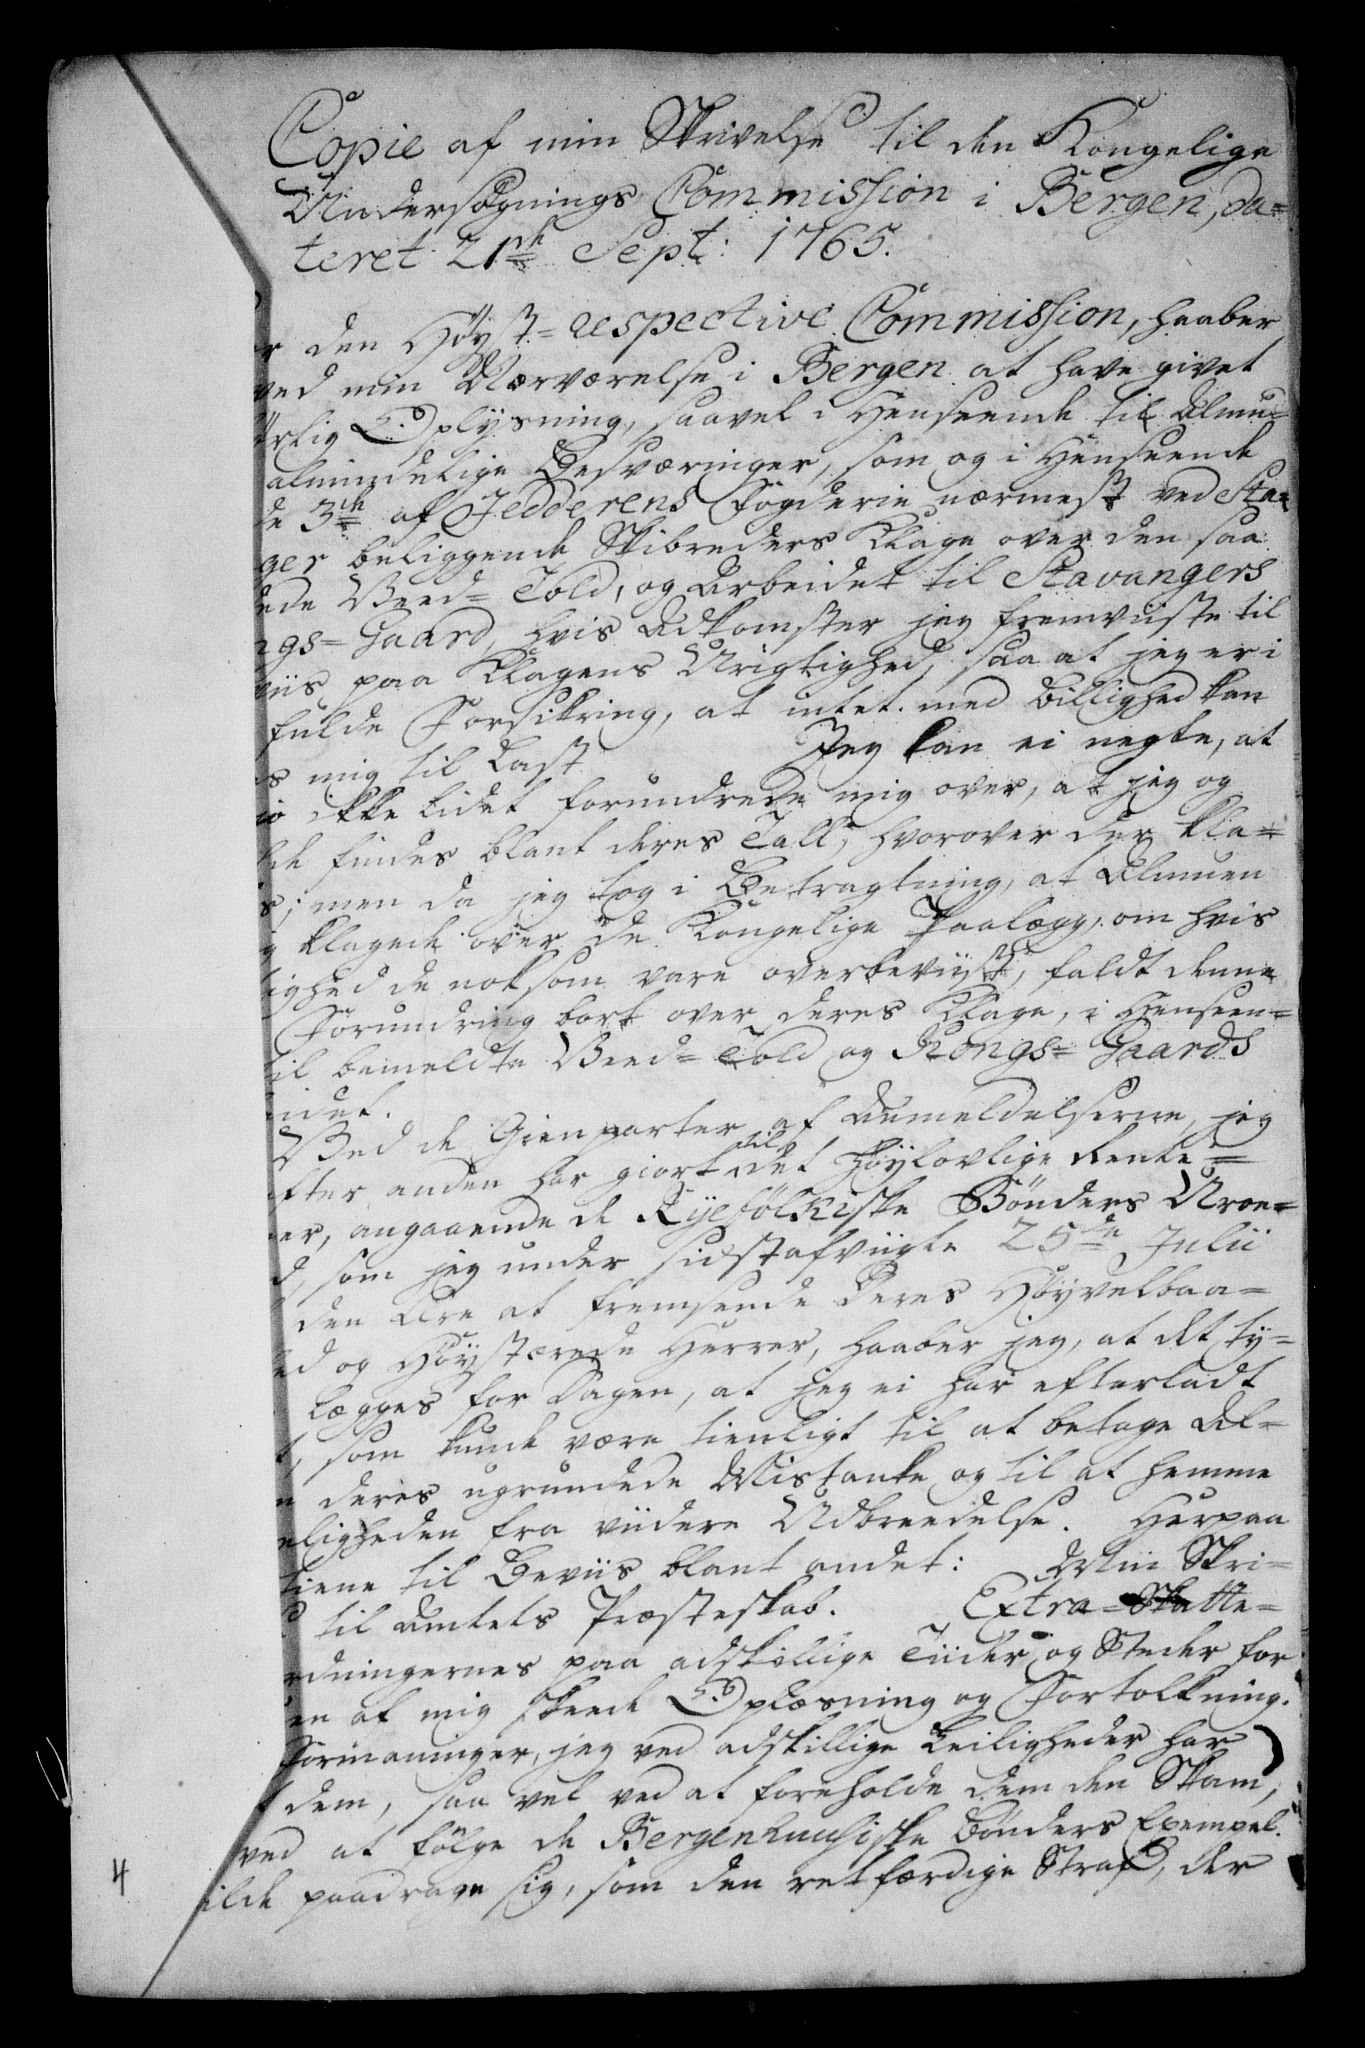 Copie af min Skrivelse til den Kongelige
Undersøgnings Commission i Bergen, da=
teret 21de Sept: 1765.
r den Høyst=respective Commission, haaber
ved min Nærværelse i Bergen at have givet
rlig Oplysning, saavel i Henseende til Almu=
almindelige Besværinger, som og i Henseende
de 3de af Jedderens Fogderie nærmest ved Sta=
ger beliggende Skibreders Klage over den saa
ede Veed=Told, og Arbeidet til Stavangers
ngs=Gaard, hvis Adkomster jeg fremviiste til
viis paa Klagens Urigtighed, saa at jeg er i
fulde Forsikring, at intet med Billighed kan
s mig til Last. Jeg kan ei negte, at
jo ikke lidet forundrede mig over, at jeg og
de findes blant deres Tall, hvorover der kla=
s; men da jeg tog i Betragtning, at Almuen
g klagede over de Kongelige Paalægg, om hvis
ighed de noksom vare overbeviist, faldt denne
Forundring bort over deres Klage, i Henseen=
til bemeldte Veed=Told og Kongs=Gaards
eidet.
Ved de Gienparter af Anmeldelserne, jeg
efter anden har giort til det Høylovlige Rente=
er, angaaende de Ryefølkiske Bønders Uroe=
d, som jeg under sidstafvigte 25de Julii
den Ære at fremsende Deres Høyvelbaa=
ed og Høystærede Herrer, haaber jeg, at det ty=
lægges for Dagen, at jeg ei har efterladt
t, som kunde være tienligt til at betage Al=
n deres ugrundede Mistanke og til at hemme
eligheden fra viidere Udbreedelse. Herpaa
tiene til Beviis blant andet: Min Skri=
til Amtets Præsteskab. Extra=Skatte=
rdningernes paa adskillige Tiider og Steder for
en af mig skeede Oplæsning og Fortolkning.
Formaninger, jeg ved adskillige Leiligheder har
t dem, saa vel ved at foreholde dem den Skam,
ved at følge de Bergenhuusiske Bønders Exempel
ilde paadrage sig, som den retfærdige Straf, der
4